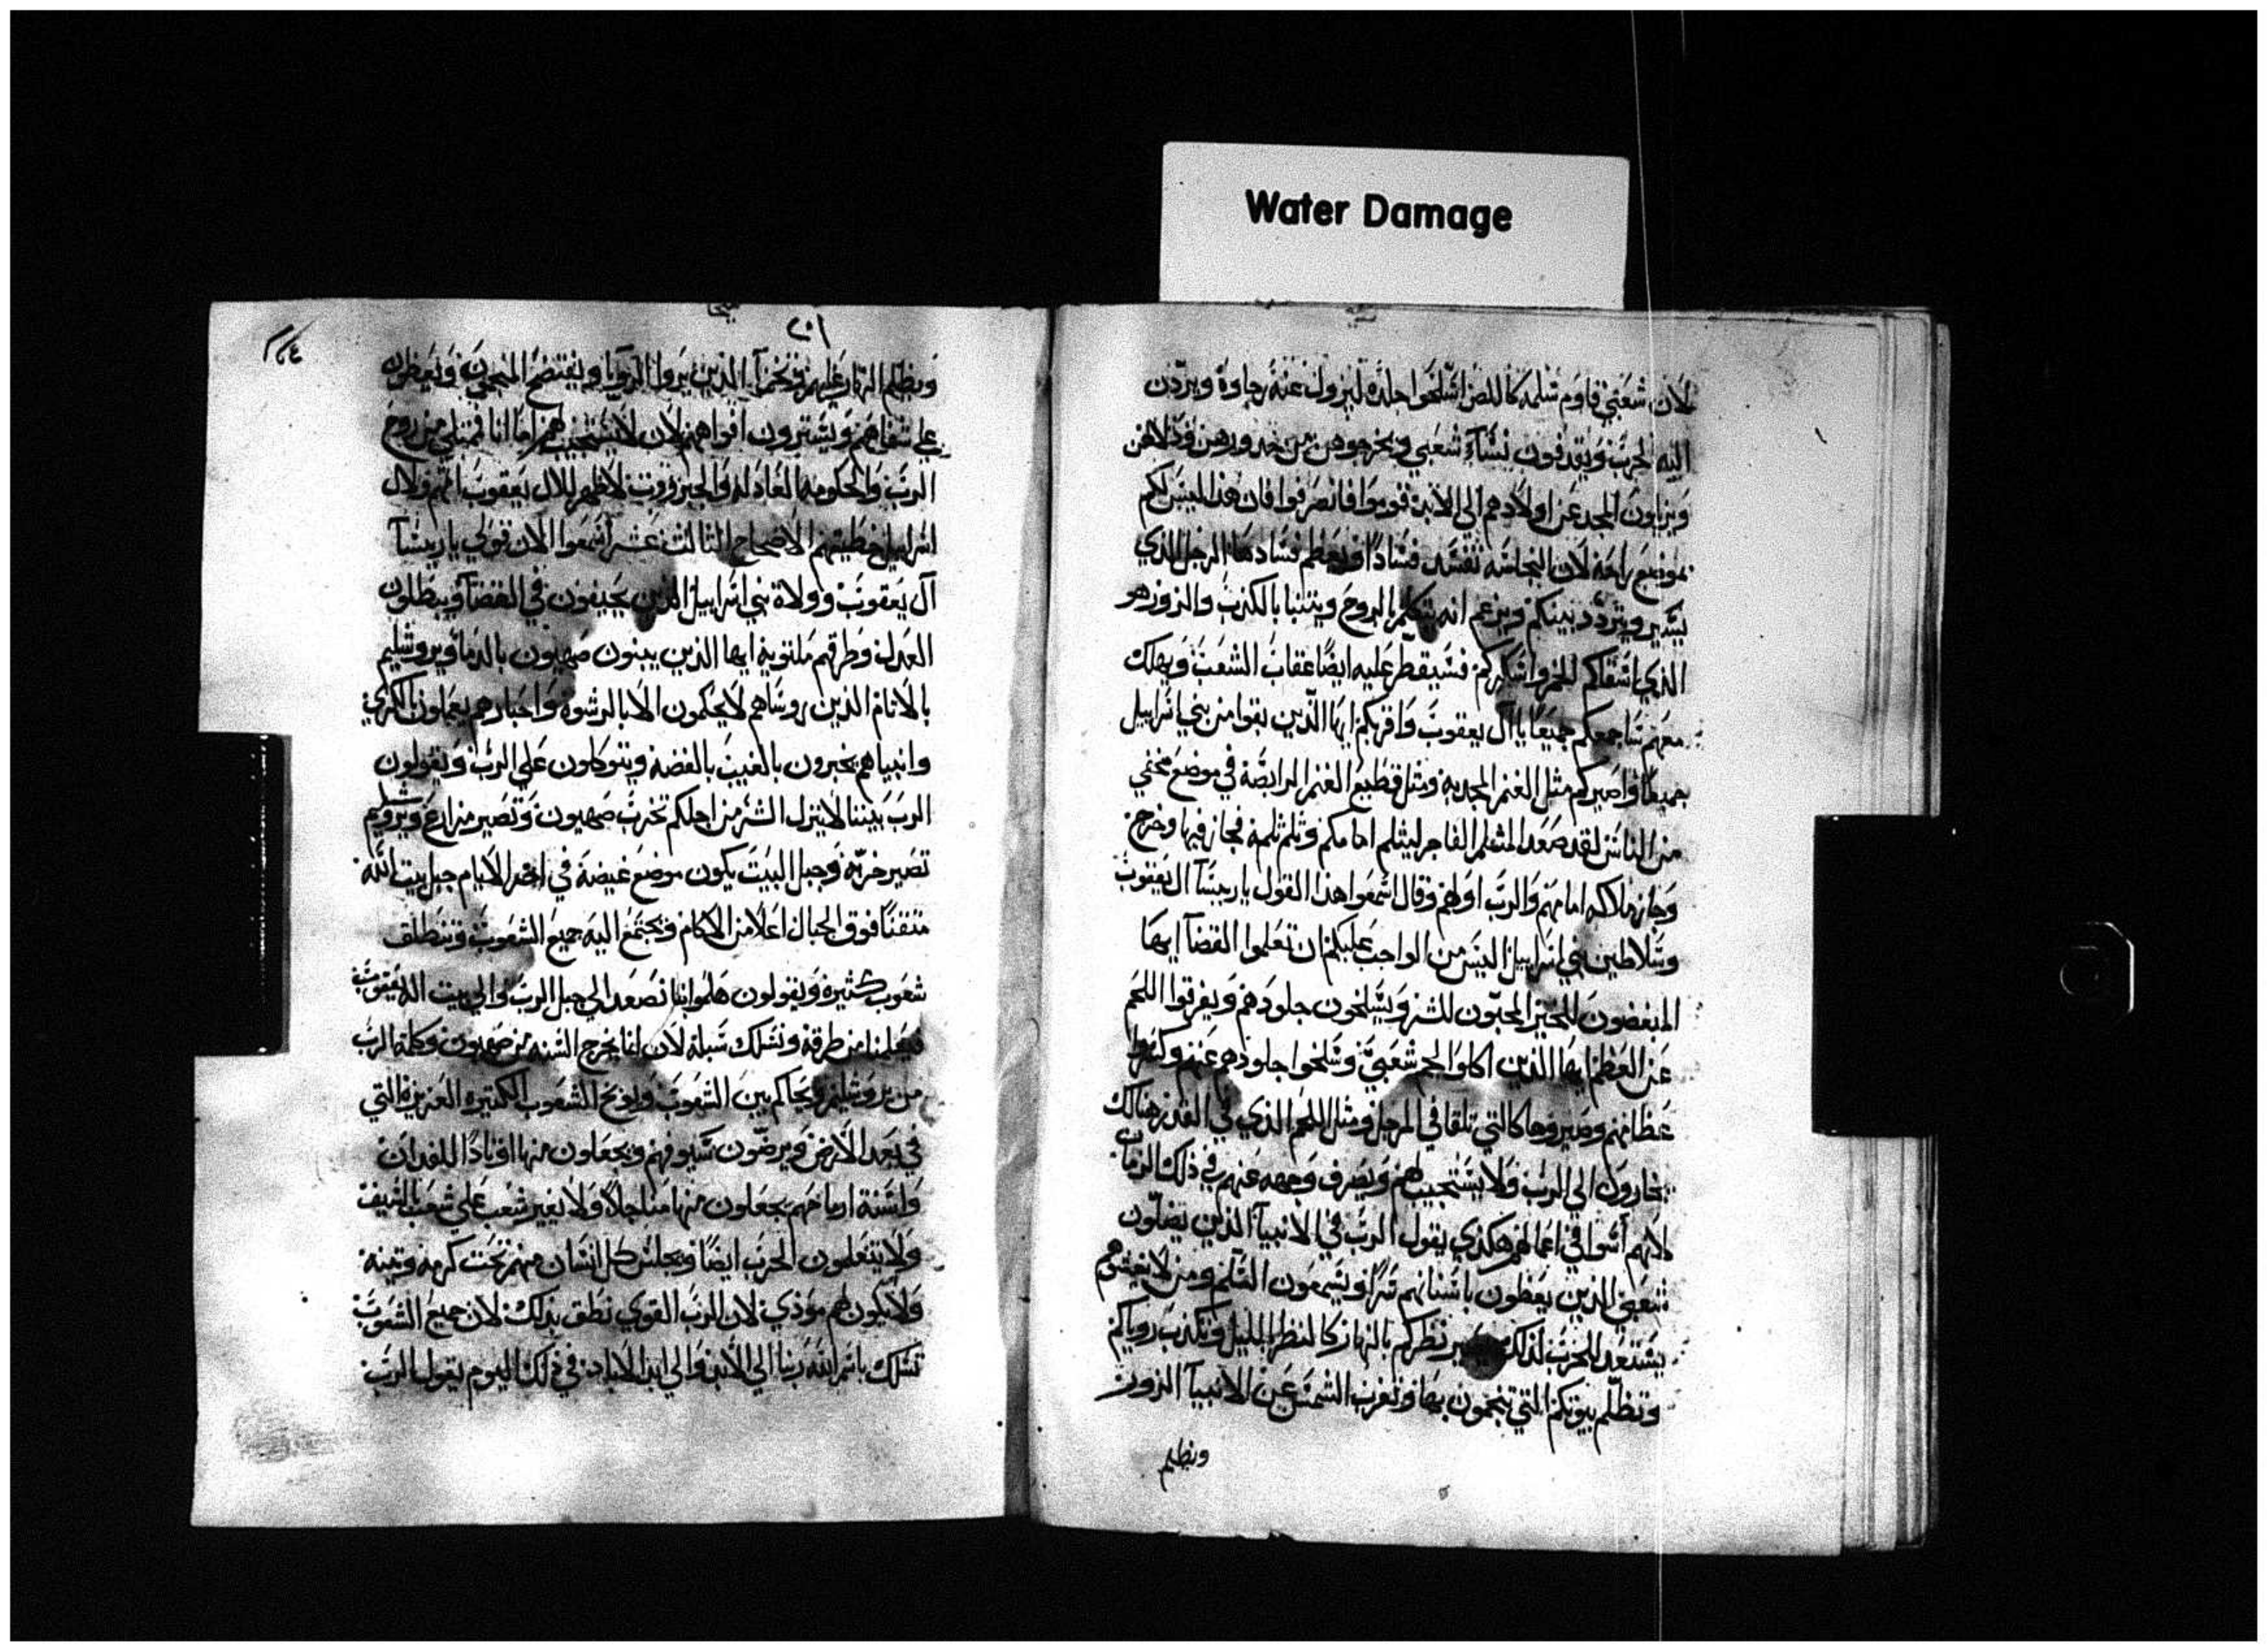 Water Damage
لان شعبي قاوم سلمه كاللص اسلخوا جلده ليزول عنه رجاوه ويردّن
اليه الحرب ويقذفون نساء شعبي ويخرجوهن من خدورهن ودلالهن
ويزيلون المجد عن اولادهم الي الابد قوموا فانصرفوا فان هذا ليس لكم
بموضع راحه لان النجاسه تفسد فسادًا ويعظم فسادها الرجل الذي
يسير ويتردد بينكم ويزعم انه يتكلم بالروح ويتنبا بالكذب والزور هو
الذي اسقاكم الخمر واسكركم فسيقطر عليه ايضًا عقاب الشعب ويهلك
معهم ساجمعكم جميعًا يا ال يعقوب واقربكم ايها الذين بقوا من بني اسراييل
جميعًا واصيركم مثل الغنم المجدبه ومثل قطيع الغنم الرابضة في موضع مخفي
من الناس لقد صعد المثلم الفاجر ليثلم امامكم وثلم ثلمه فجاز فيها وخرج
وجاز ملاكه امامهم والرب اولهم وقال اسمعوا هذا القول ياريسا ال يعقوب
وسلاطين بني اسراييل اليس من الواجب عليكم ان تعلموا القضا ايها
المبغضون للخير المحبّون للشر ويسلخون جلودهم ويفرقوا اللحم
عن العظم ايها الذين اكلوا لحم شعبي وسلخوا جلودهم عنهم وكسروا
عظامهم وصيروها كالتي تلقا في المرجل ومثل اللحم الذي في القدر هنالك
يجارون الي الرب ولا يستجيب لهم ويصرف وجهه عنهم في ذلك الزمان
لانهم اسوا في اعمالهم هكذي يقول الرب في الانبيا الذين يضلّون
شعبي الذين يعظون باسنانهم شرًا ويسمون السلم ومن لا يعشوهم
يستعد للحرب لذلك يصير نظركم بالنهار كالنظر بالليل وتكذب روياكم
وتظلم بيوتكم التي تنجمون بها وتغرب الشمس عن الانبيا الزور
ويظلم
٢٠١
ويظلم النهار عليهم وتخزا الذين يروا الرويا ويفتضح المنجمون ويعظون
علي شفاهم ويسترون افواههم لان لا يستجيب لهم اما انا فمتلي من روح
الرب والحكومه العادله والجبروت لاظهر لال يعقوب اثمهم ولال
اسراييل خطيتهم الاصحاح الثالث عشر اسمعوا الان قولي ياريسا
آل يعقوب وولاة بني اسراييل الذين يحيفون في القضا ويبطلون
العدل وطرقهم ملتويه ايها الذين يبنون صهيون بالدما ويروشليم
بالاثام الذين روساهم لا يحكمون الا بالرشوه واحبارهم يعلمون بالكري
وانبياهم يخبرون بالغيب بالفضه ويتوكلون علي الرب ويقولون
الرب بيننا لا ينزل الشر من اجلكم تخرب صهيون وتصير مزارع ويروشليم
تصير خربه وجبل البيت يكون موضع غيضة في اخر الايام جبل بيت الله
متقنًا فوق الجبال اعلا من الاكام ويجتمع اليه جميع الشعوب وتنطلق
شعوب كثيره ويقولون هلموا بنا نصعد الي جبل الرب والي بيت اله يعقوب
فيعلمنا من طرقه ونسلك سبله لان انما يخرج السنه من صهيون وكلمة الرب
من يروشليم ويحاكم بين الشعوب ويوبخ الشعوب الكثيره العزيزه التي
في بعد الارض ويرضّون سيوفهم ويجعلون منها اوتادًا للفدان
واسنة ارماحهم يجعلون منها مناجلًا ولا يغير شعب علي شعب بالسيف
ولا يتعلمون الحرب ايضًا ويجلس كل انسان منهم تحت كرمه وتينه
ولا يكون لهم موذي لان الرب القوي نطق بذلك لان جميع الشعوب
تسلك باسم الله ربنا الي الابد والي ابد الاباد في ذلك اليوم يقول الرب